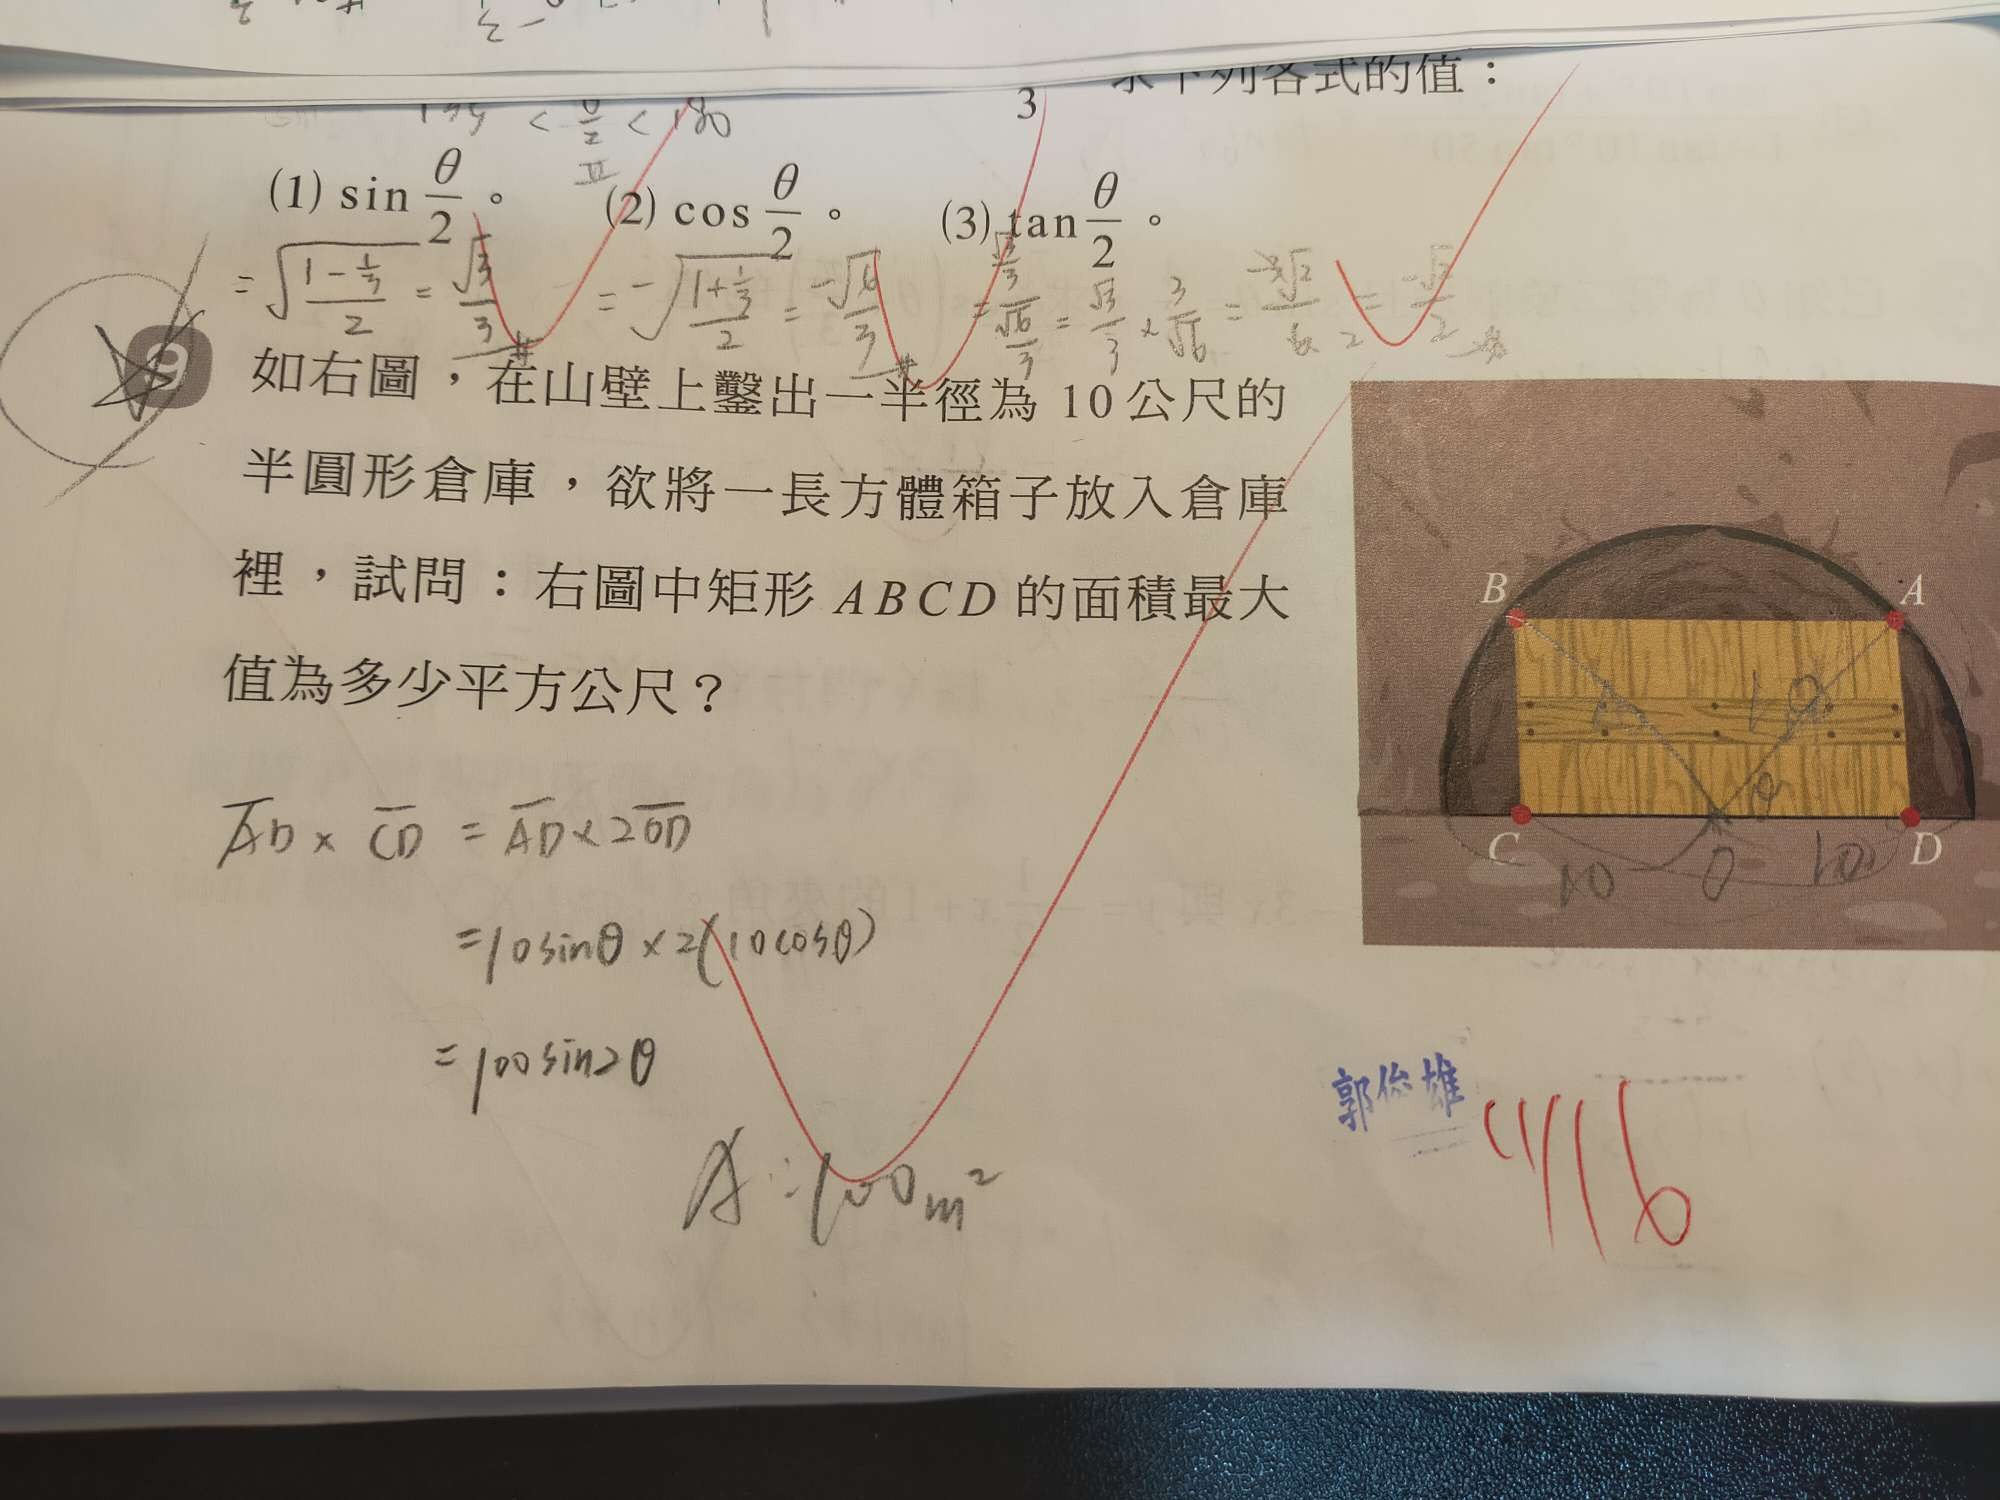 3 下列各式的值：
< θ/2 < 180
II
(1) sin θ/2。 (2) cos θ/2。 (3) tan θ/2。
= √((1-1/3)/2) = √3/3 # = -√((1+1/3)/2) = -√6/3 # = (√3/3)/(√6/3) = √3/3 × 3/√6 = -3√2/6 = -√2/2 #
9 如右圖，在山壁上鑿出一半徑為 10 公尺的
半圓形倉庫，欲將一長方體箱子放入倉庫
裡，試問：右圖中矩形 ABCD 的面積最大
值為多少平方公尺？
B A
10 10
θ
C O D
10 10
AD × CD = AD × 2OD
= 10sinθ × 2(10cosθ)
= 100sin2θ
A：100m²
郭俊雄